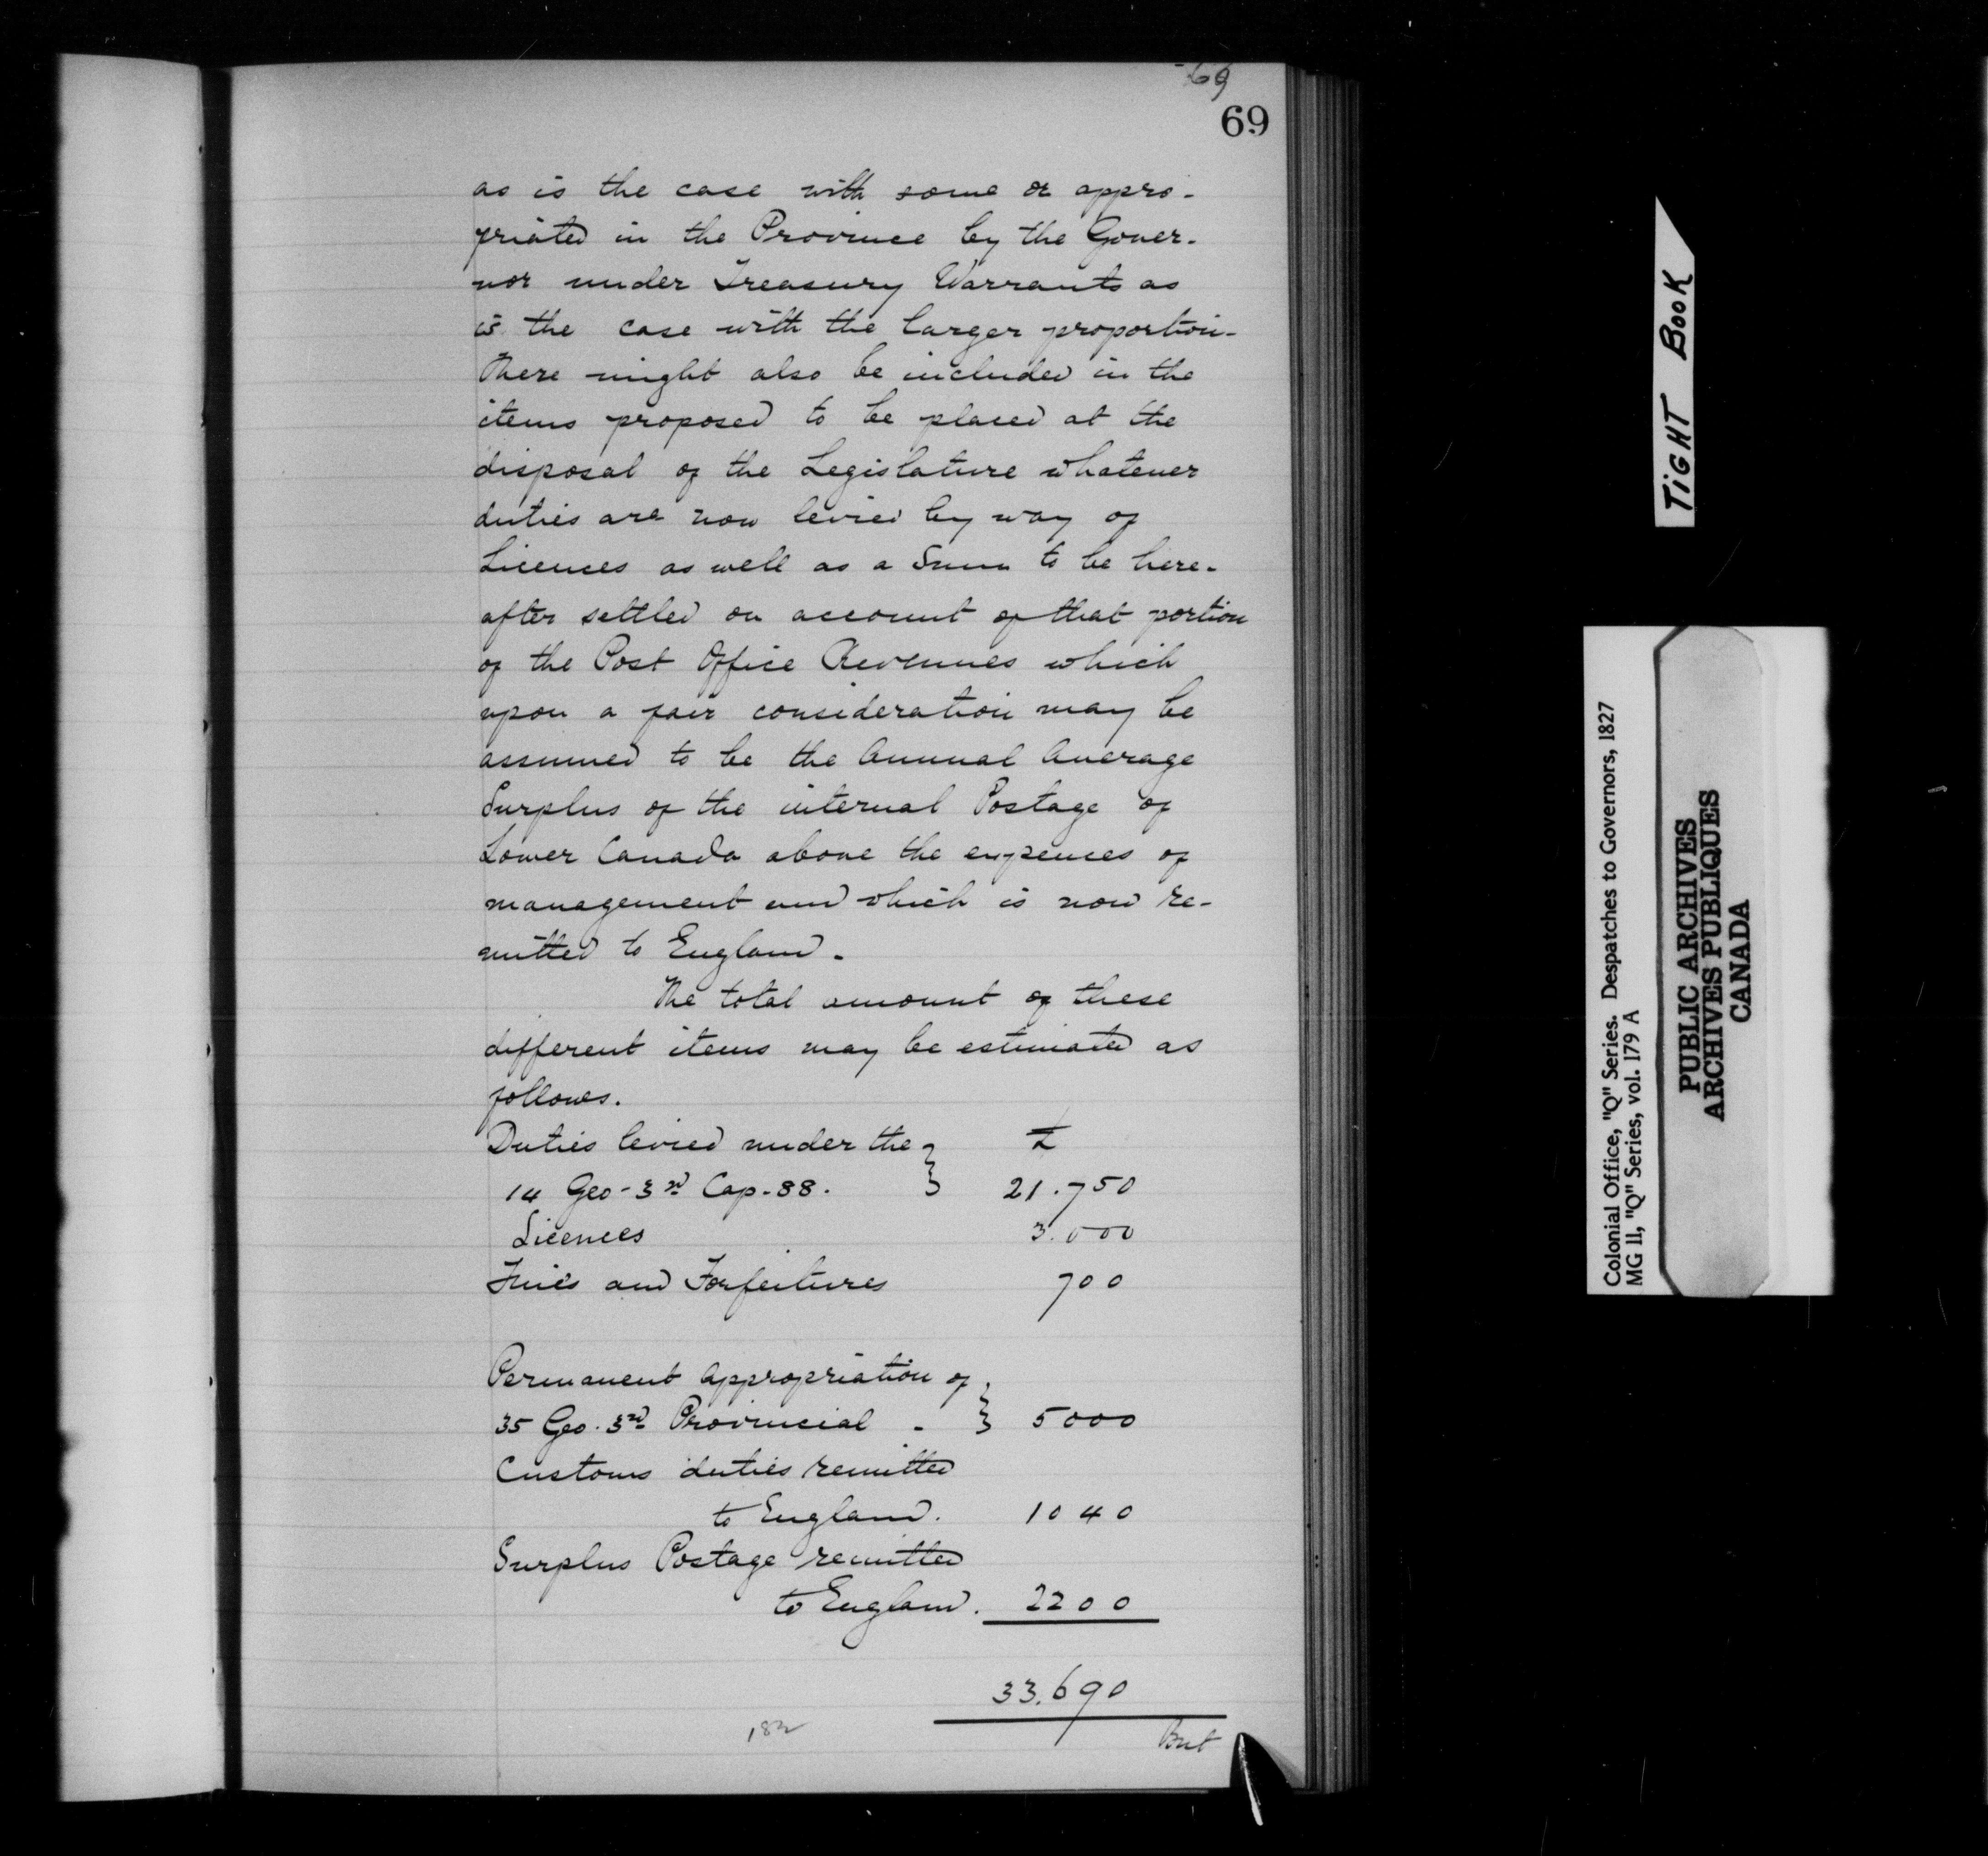 69
69
as is the case with some or appro-
priated in the Province by the Gover-
nor under Treasury Warrants as
is the case with the larger proportion-
There might also be included in the
items proposed to be placed at the
disposal of the Legislature whatever
duties are now levied by way of
Licences as well as a Sum to be here-
after settled on account of that portion
of the Post Office Revenues which
upon a fair consideration may be
assumed to be the Annual Average
Surplus of the internal Postage of
Lower Canada above the expences of
management and which is now re-
mitted to England.
The total amount of these
different items may be estimated as
follows.
Duties levied under the } £
14 Geo-3rd Cap-88. 21.750
Licences 3.000
Fines and Forfeitures 700
Permanent appropriation of }
35 Geo. 3rd Provincial - 5000
Customs duties remitted
to England. 1040
Surplus Postage remitted
to England. 2200
33.690
182
But
TIGHT BOOK
Colonial Office, "Q" Series. Despatches to Governors, 1827
MG 11, "Q" Series, vol. 179 A
PUBLIC ARCHIVES
ARCHIVES PUBLIQUES
CANADA